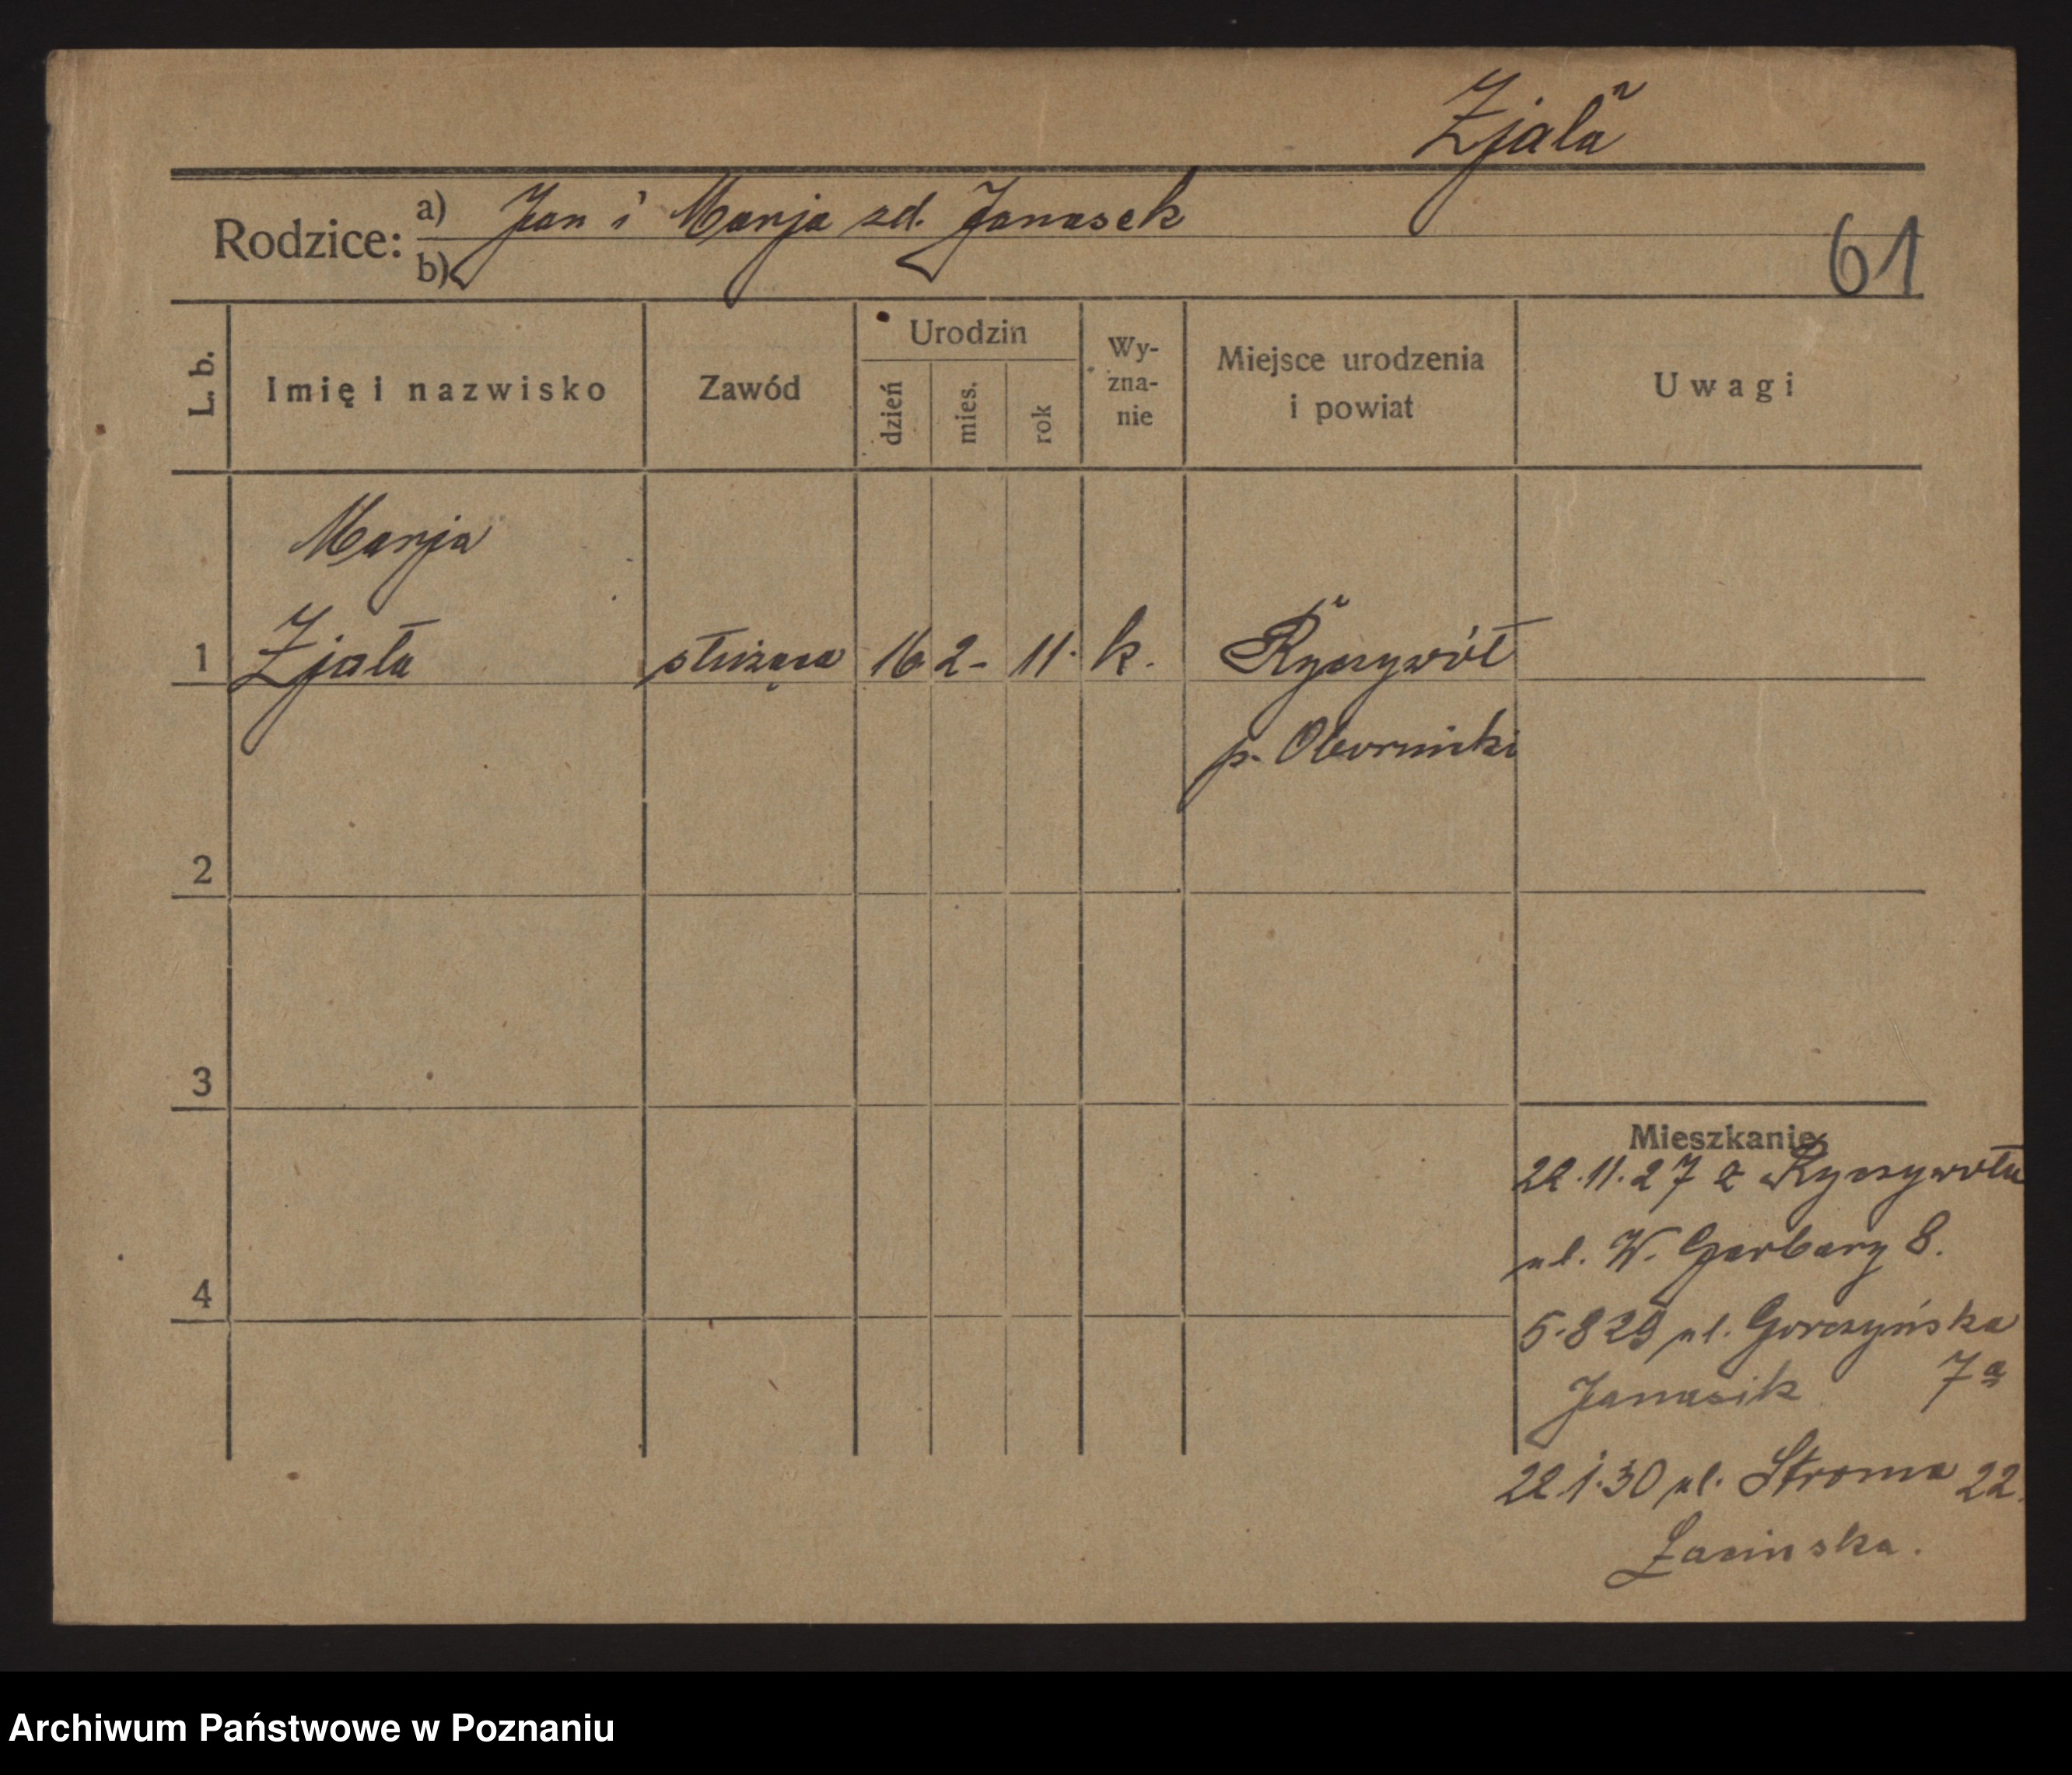 Zjała
Rodzice:
a) Jan i Marja zd. Janasek
b)
61
L. b.
Imię i nazwisko
Zawód
Urodzin
dzień
mies.
rok
Wy-
zna-
nie
Miejsce urodzenia
i powiat
Uwagi
Marja
1 Zjała służąca 16 2- 11. k. Ryczywół
p. Oborniki
2
3
4
Mieszkanie
22.11.27 z Ryczywołu
ul. W. Garbary 8.
5.8 29 ul. Gorczyńska
Janasik 7a
22.1.30 ul. Stroma 22.
Archiwum Państwowe w Poznaniu